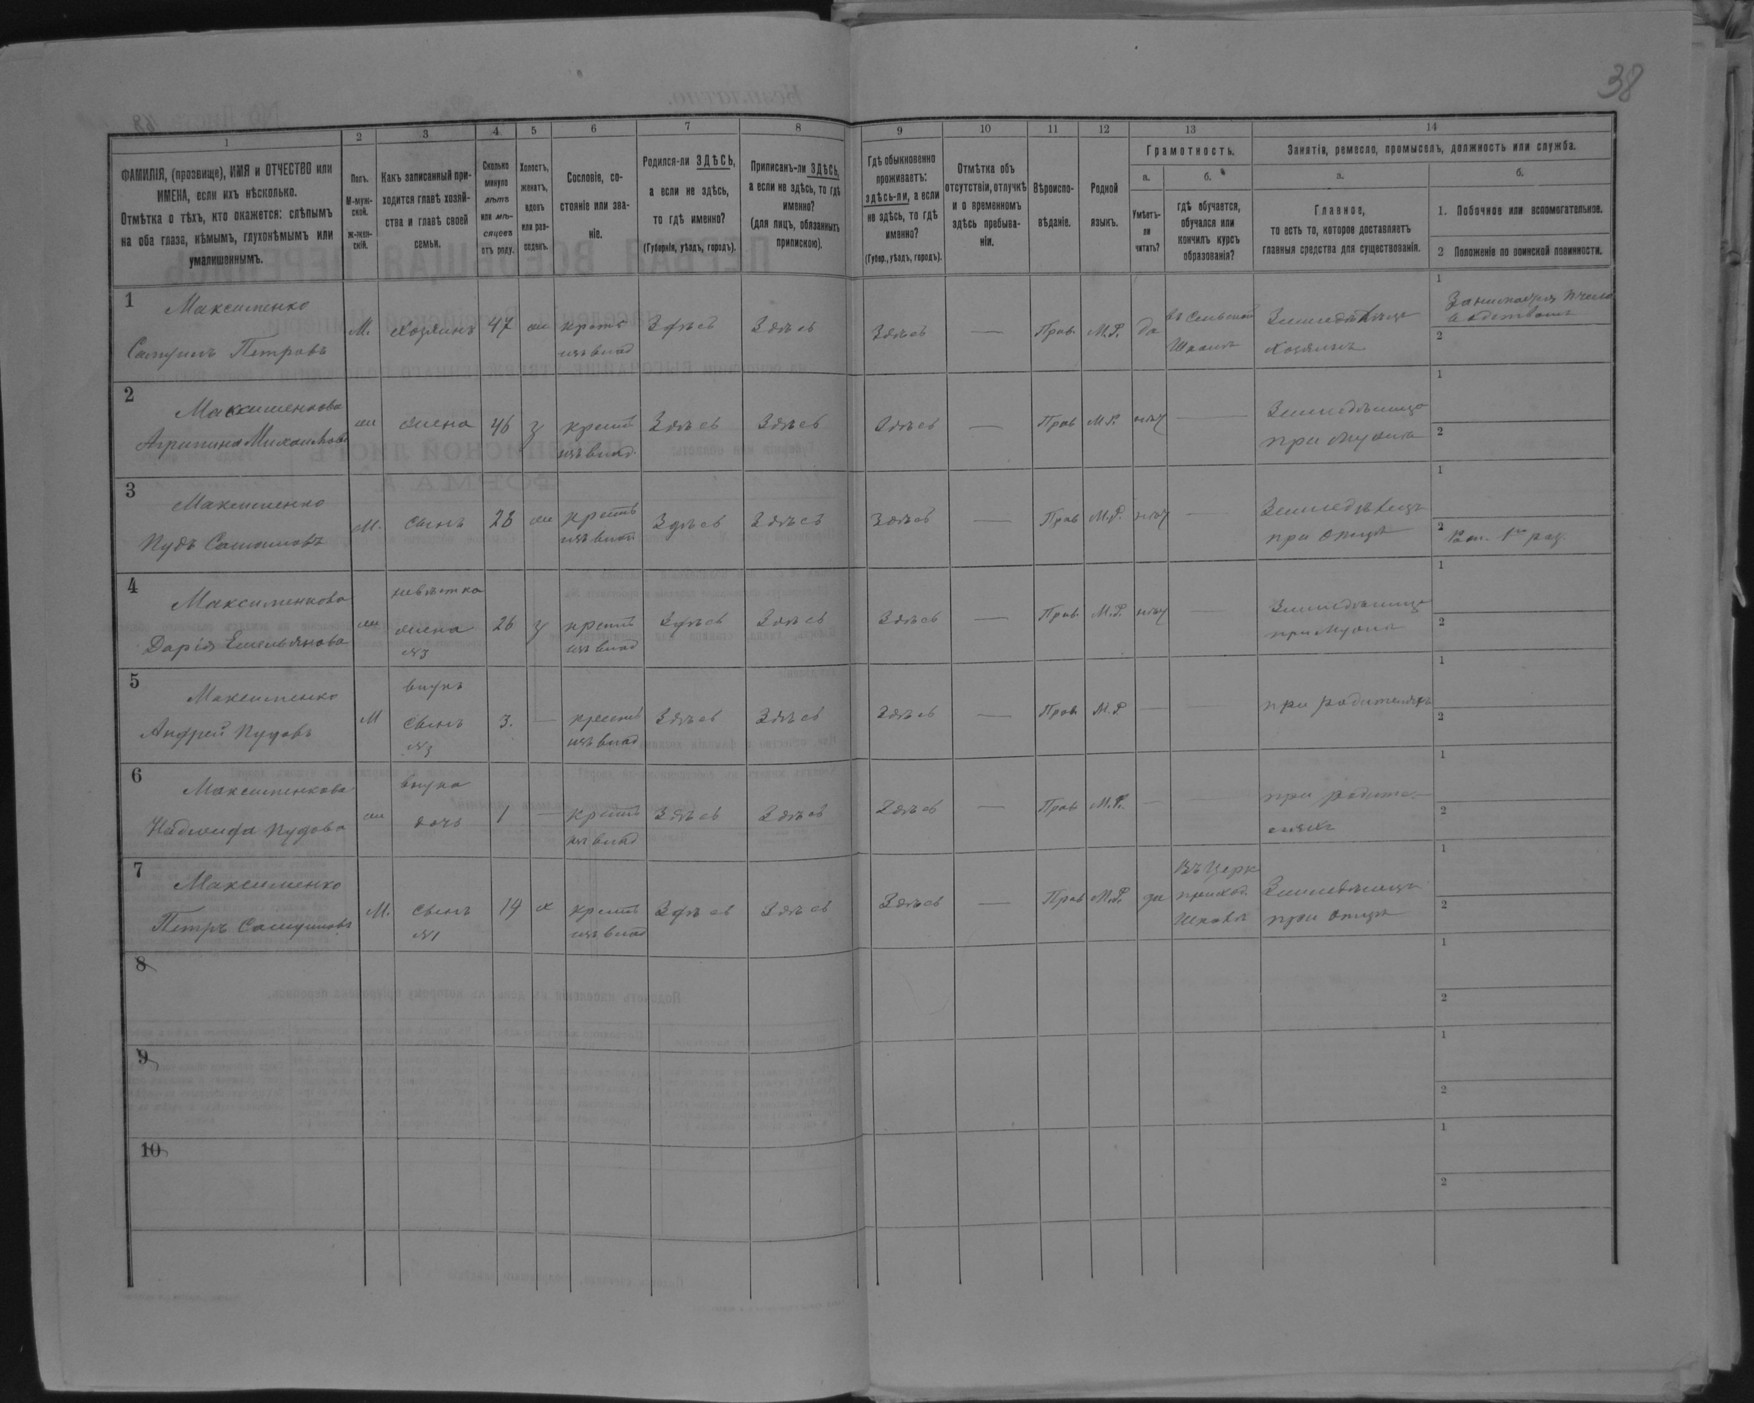 38
1 2 3 4 5 6 7 8 9 10 11 12 13 14
ФАМИЛІЯ, (прозвище), ИМЯ и ОТЧЕСТВО или
ИМЕНА, если ихъ нѣсколько.
Отмѣтка о тѣхъ, кто окажется: слѣпымъ
на оба глаза, нѣмымъ, глухонѣмымъ или
умалишеннымъ.
Полъ.
М-муж-
ской.
Ж-жен-
скій.
Какъ записанный при-
ходится главѣ хозяй-
ства и главѣ своей
семьи.
Сколько
минуло
лѣтъ
или мѣ-
сяцевъ
отъ роду.
Холостъ,
женатъ,
вдовъ
или раз-
веденъ.
Сословіе, со-
стояніе или зва-
ніе.
Родился-ли ЗДѢСЬ,
а если не здѣсь,
то гдѣ именно?
(Губернія, уѣздъ, городъ).
Приписанъ-ли ЗДѢСЬ,
а если не здѣсь, то гдѣ
именно?
(для лицъ, обязанныхъ
припискою).
Гдѣ обыкновенно
проживаетъ:
здѣсь-ли, а если
не здѣсь, то гдѣ
именно?
(Губер., уѣздъ, городъ).
Отмѣтка объ
отсутствіи, отлучкѣ
и о временномъ
здѣсь пребыва-
ніи.
Вѣроиспо-
вѣданіе.
Родной
языкъ.
Грамотность.
а.
Умѣетъ-
ли
читать?
б.
гдѣ обучается,
обучался или
кончилъ курсъ
образованія?
Занятія, ремесло, промыселъ, должность или служба.
а.
Главное,
то есть то, которое доставляетъ
главныя средства для существованія.
б.
1. Побочное или вспомогательное.
2 Положеніе по воинской повинности.
1 Максименко
Петровъ М. хозяинъ 47 крест Здѣсь Здѣсь Здѣсь — Прав М.Р. да
изъ влад Школѣ хозяинъ
1
2
2 Максименкова
Агрипина Михайлова жена 46 з крест Здѣсь Здѣсь Здѣсь — Прав М.Р. —
изъ влад при мужѣ
1
2
3 Максименко
Пудъ М. сынъ 28 крест Здѣсь Здѣсь Здѣсь — Прав М.Р. —
изъ влад при отцѣ
1
2
4 Максименкова невѣстка
Дарія Емельянова жена 26 з крест Здѣсь Здѣсь Здѣсь — Прав. М.Р. —
№3 изъ влад при мужѣ
1
2
5 Максименко внукъ
Андрей Пудовъ М сынъ 3. — крест Здѣсь Здѣсь Здѣсь — Прав М.Р — — при родителяхъ
№3 изъ влад
1
2
6 Максименкова внука
Пудова дочь 1 — крест Здѣсь Здѣсь Здѣсь — Прав М.Р. — — при родите-
изъ влад ляхъ
1
2
7 Максименко Въ Церк
Петръ М. сынъ 19 х крест Здѣсь Здѣсь Здѣсь — Прав М.Р. да приход.
№1 изъ влад Школѣ при отцѣ
1
2
8
1
2
9
1
2
10
1
2